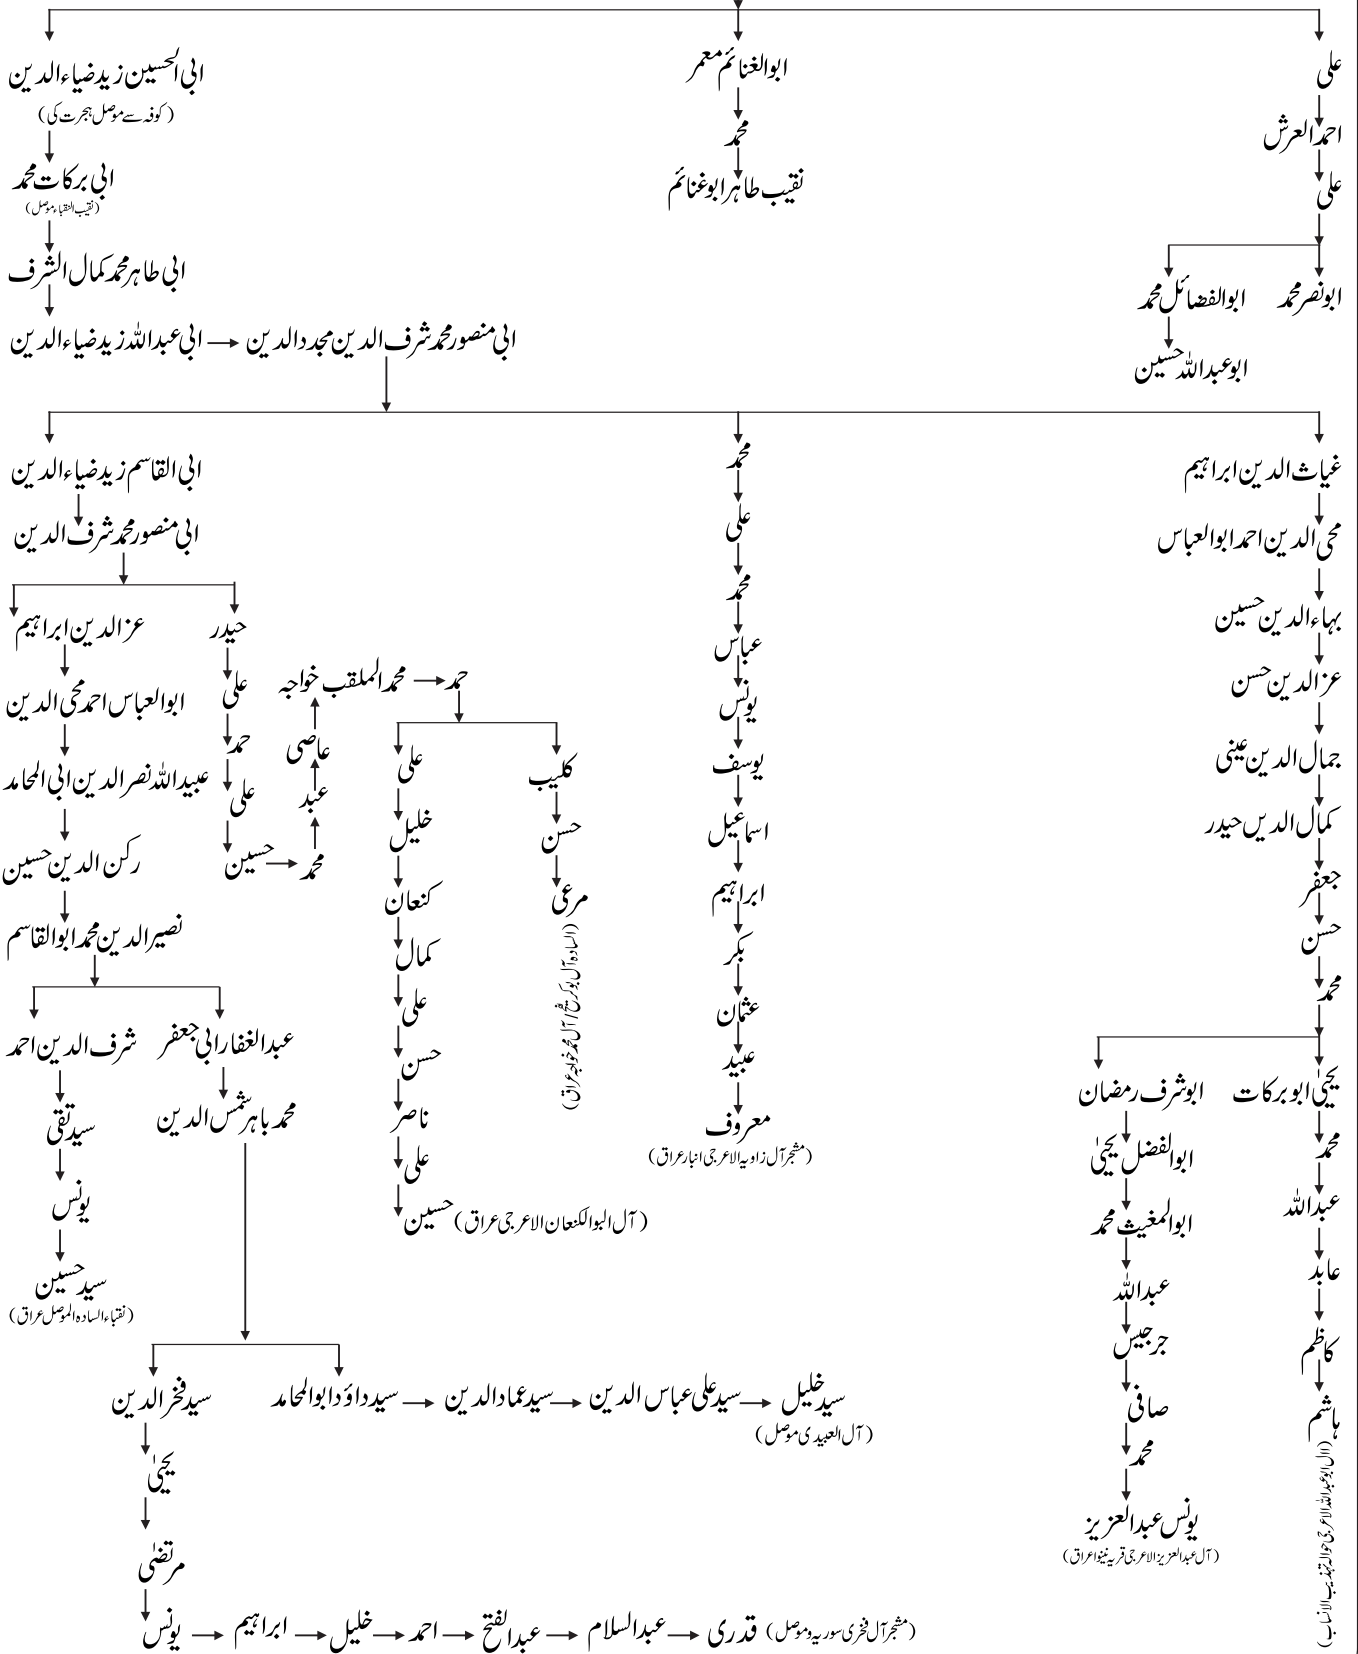 علی
احمد العرش
علی
ابو نصر محمد
ابو الفضائل محمد
ابو عبداللہ حسین
ابو الغنائم معمر
محمد
نقیب طاہر ابو غنائم
ابی الحسین زید ضیاء الدین
(کوفہ سے موصل ہجرت کی)
ابی برکات محمد
(نقیب النقباء موصل)
ابی طاہر محمد کمال الشرف
ابی عبداللہ زید ضیاء الدین
ابی منصور محمد شرف الدین مجدد الدین
غیاث الدین ابراہیم
محی الدین احمد ابو العباس
بہاء الدین حسین
عز الدین حسن
جمال الدین عینی
کمال الدیں حیدر
جعفر
حسن
محمد
یحییٰ ابو برکات
محمد
عبداللہ
عابد
کاظم
ہاشم
(اال ابو عبداللہ الاعرجی حوالہ تہذیب الانساب)
ابو شرف رمضان
ابو الفضل یحییٰ
ابو المغیث محمد
عبداللہ
جرجیس
صافی
محمد
یونس عبدالعزیز
(آل عبدالعزیز الاعرجی قریہ نینوا عراق)
محمد
علی
محمد
عباس
یونس
یوسف
اسماعیل
ابراہیم
بکر
عثمان
عبید
معروف
(مشجر آل زاویہ الاعرجی انبار عراق)
ابی القاسم زید ضیاء الدین
ابی منصور محمد شرف الدین
حیدر
علی
حمد
علی
حسین
محمد
عبد
عاصی
محمد الملقب خواجہ
حمد
کلیب
حسن
مرعی
(السادہ آل بو کریخ / آل محمد خواجہ عراق)
علی
خلیل
کنعان
کمال
علی
حسن
ناصر
علی
حسین (آل البو الکنعان الاعرجی عراق)
عز الدین ابراہیم
ابو العباس احمد محی الدین
عبید اللہ نصر الدین ابی المحامد
رکن الدین حسین
نصیر الدین محمد ابو القاسم
عبدالغفار ابی جعفر
محمد باہر شمس الدین
شرف الدین احمد
سید تقی
یونس
سید حسین
(نقباء السادہ الموصل عراق)
سید داؤد ابو المحامد
سید عماد الدین
سید علی عباس الدین
سید خلیل
(آل العبیدی موصل)
سید فخر الدین
یحییٰ
مرتضیٰ
یونس
ابراہیم
خلیل
احمد
عبدالفتح
عبدالسلام
قدری (مشجر آل فخری سوریہ و موصل)